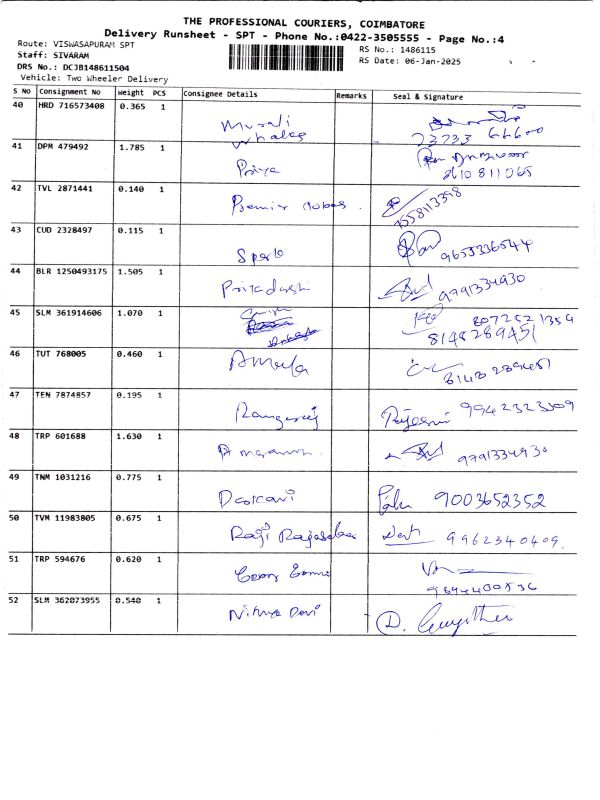 THE PROFESSIONAL COURIERS, COIMBATORE
Delivery Runsheet - SPT - Phone No.:0422-3505555 - Page No.:4
Route: VISWASAPURAM SPT
RS No.: 1486115
Staff: SIVARAM
RS Date: 06-Jan-2025
DRS No.: DCJB148611504
Vehicle: Two Wheeler Delivery
S No Consignment No Weight PCS Consignee Details Remarks Seal & Signature
40 HRD 716573408 0.365 1 Murali
Whales 73733 66600
41 DPM 479492 1.785 1 Priya
8610811065
42 TVL 2871441 0.140 1 7558113398
43 CUD 2328497 0.115 1 9655336544
44 BLR 1250493175 1.505 1 9791334930
45 SLM 361914606 1.070 1 8072521354
8148289451
46 TUT 768005 0.460 1 8148289451
47 TEN 7874857 0.195 1 Rangaraj 9942323509
48 TRP 601688 1.630 1 9791334930
49 TNM 1031216 0.775 1 9003652352
50 TVM 11983805 0.675 1 Raji 9962340409.
51 TRP 594676 0.620 1
52 SLM 362073955 0.540 1 Nithya Devi D.